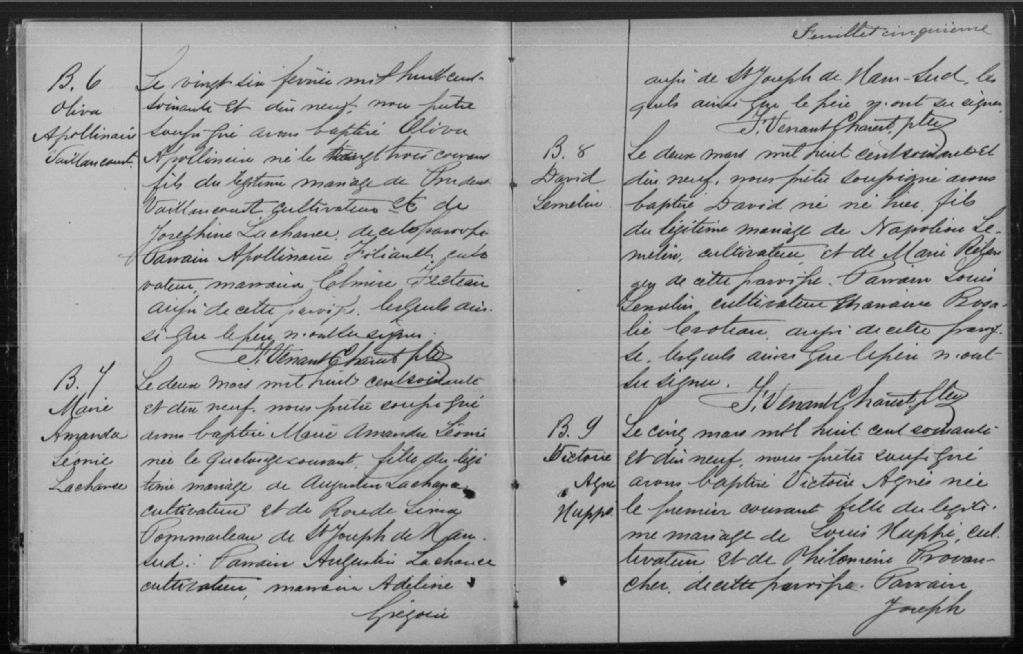 B. 6
Oliva
Apollinaire
Vaillancourt
Le vingt six février mil huit cent
soixante et dix neuf, nous prêtre
soussigné avons baptisé Oliva
Apollinaire né le vingt trois courant
fils du légitime mariage de Prudent
Vaillancourt cultivateur et de
Josephine Lachance de cette paroisse
Parrain Apollinaire culti
vateur, marraine Elmire Fecteau
aussi de cette paroisse, lesquels ain
si que le père n'ont su signer.
J. Venant Charest ptre
B. 7
Marie
Amanda
Léonie
Lachance
Le deux mars mil huit cent soixante
et dix neuf, nous prêtre soussigné
avons baptisé Marie Amanda Léonie
née le quatorze courant, fille du légi
time mariage de Augustin Lachance
cultivateur et de Rose de Lima
Pommerleau de St Joseph de Ham-
Sud: Parrain Augustin Lachance
cultivateur, marraine Adeline
Grégoire
Feuillet cinquième
aussi de St Joseph de Ham-Sud, les
quels ainsi que le père n'ont su signer
J. Venant Charest, ptre
B. 8
David
Lemelin
Le deux mars mil huit cent soixante et
dix neuf, nous prêtre soussigné avons
baptisé David né né hier, fils
du légitime mariage de Napoléon Le-
melin, cultivateur, et de Marie
de cette paroisse. Parrain Louis
Lemelin cultivateur marraine Rosa-
lie Croteau, aussi de cette parois
se, lesquels ainsi que le père n'ont
su signer.
J. Venant Charest Ptre
B. 9
Victoire
Agnès
Huppé
Le cinq mars mil huit cent soixante
et dix neuf, nous prêtre soussigné
avons baptisé Victoire Agnès née
le premier courant fille du légiti-
me mariage de Louis Huppé, cul
tivateur et de Philomène Provan-
cher, de cette paroisse. Parrain
Joseph